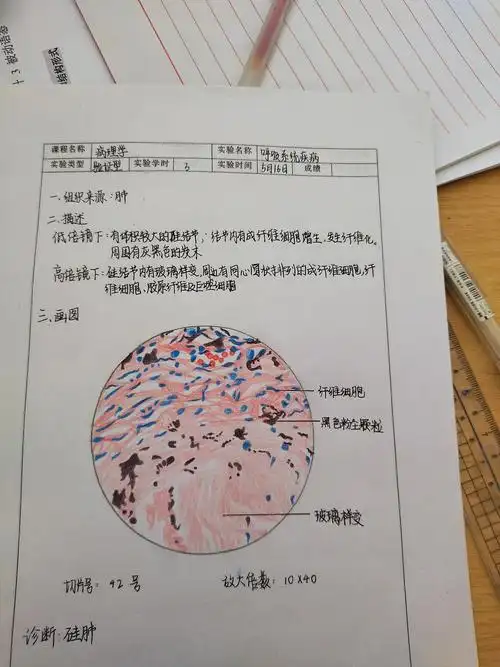 +3 被动语态
结构形式
课程名称 病理学 实验名称 呼吸系统疾病
实验类型 验证型 实验学时 3 实验时间 5月16日 成绩
一.组织来源:肺
二.描述
低倍镜下:有体积较大的硅结节,结节内有成纤维细胞增生,发生纤维化。
周围有灰黑色的炭末
高倍镜下:硅结节内有玻璃样变,周边有同心圆状排列的成纤维细胞,纤
维细胞、胶原纤维及巨噬细胞
三.画图
纤维细胞
黑色粉尘颗粒
玻璃样变
切片号: 42号 放大倍数: 10×40
诊断:硅肺